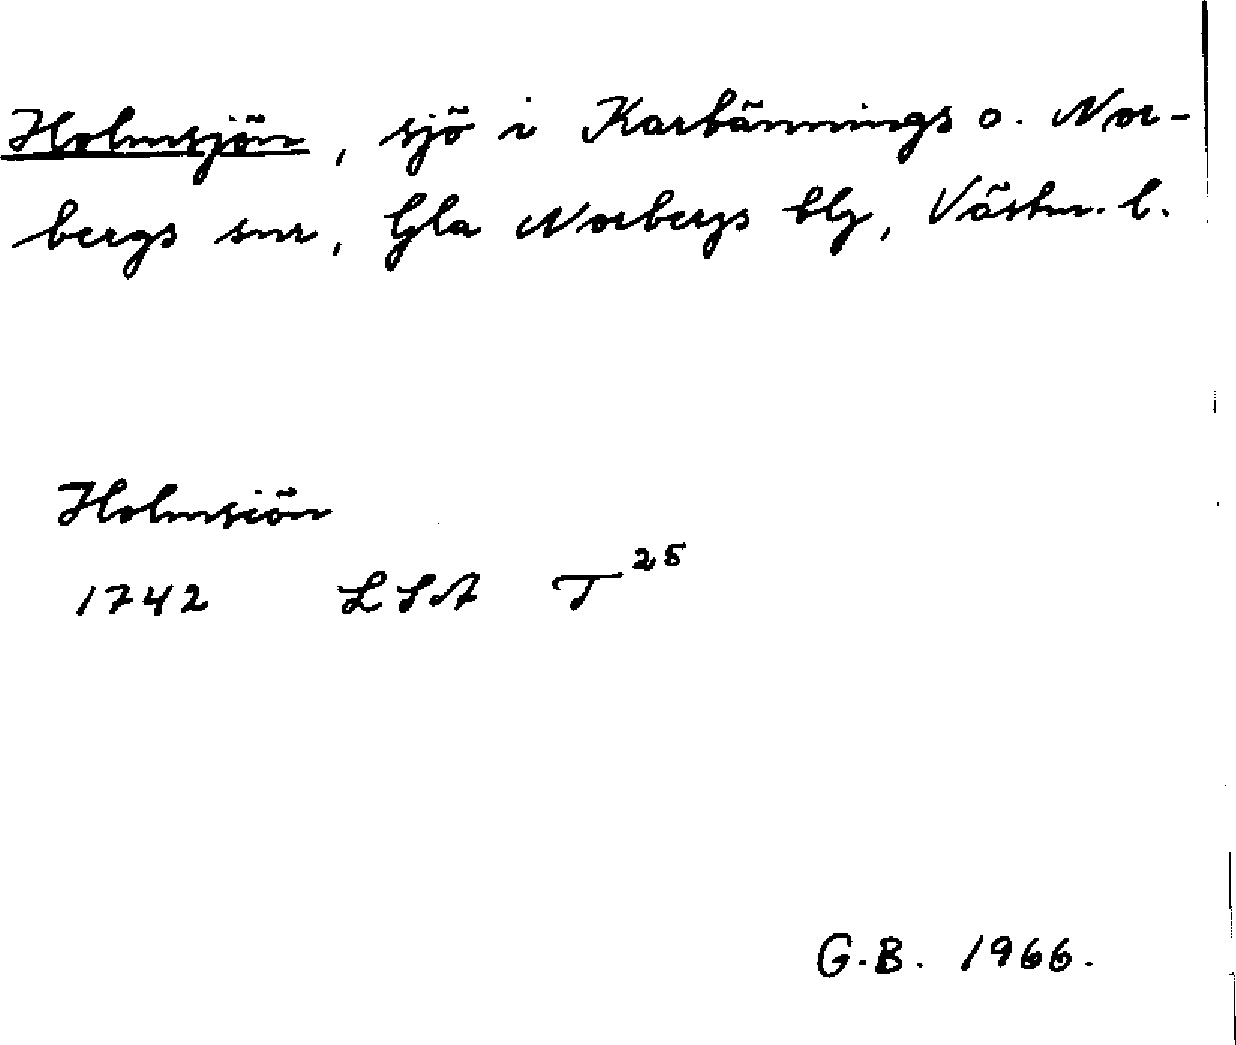 Holmsjön, sjö i Karbännings o. Nor-
bergs snr, Gla Norbergs blg, Västm. l.
Holmsiön
1742 LSA T 25
G.B. 1966.